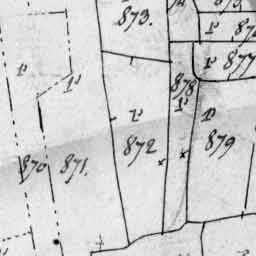 873.
r
877
r
r
878
r
r
r
872
879
870
871.